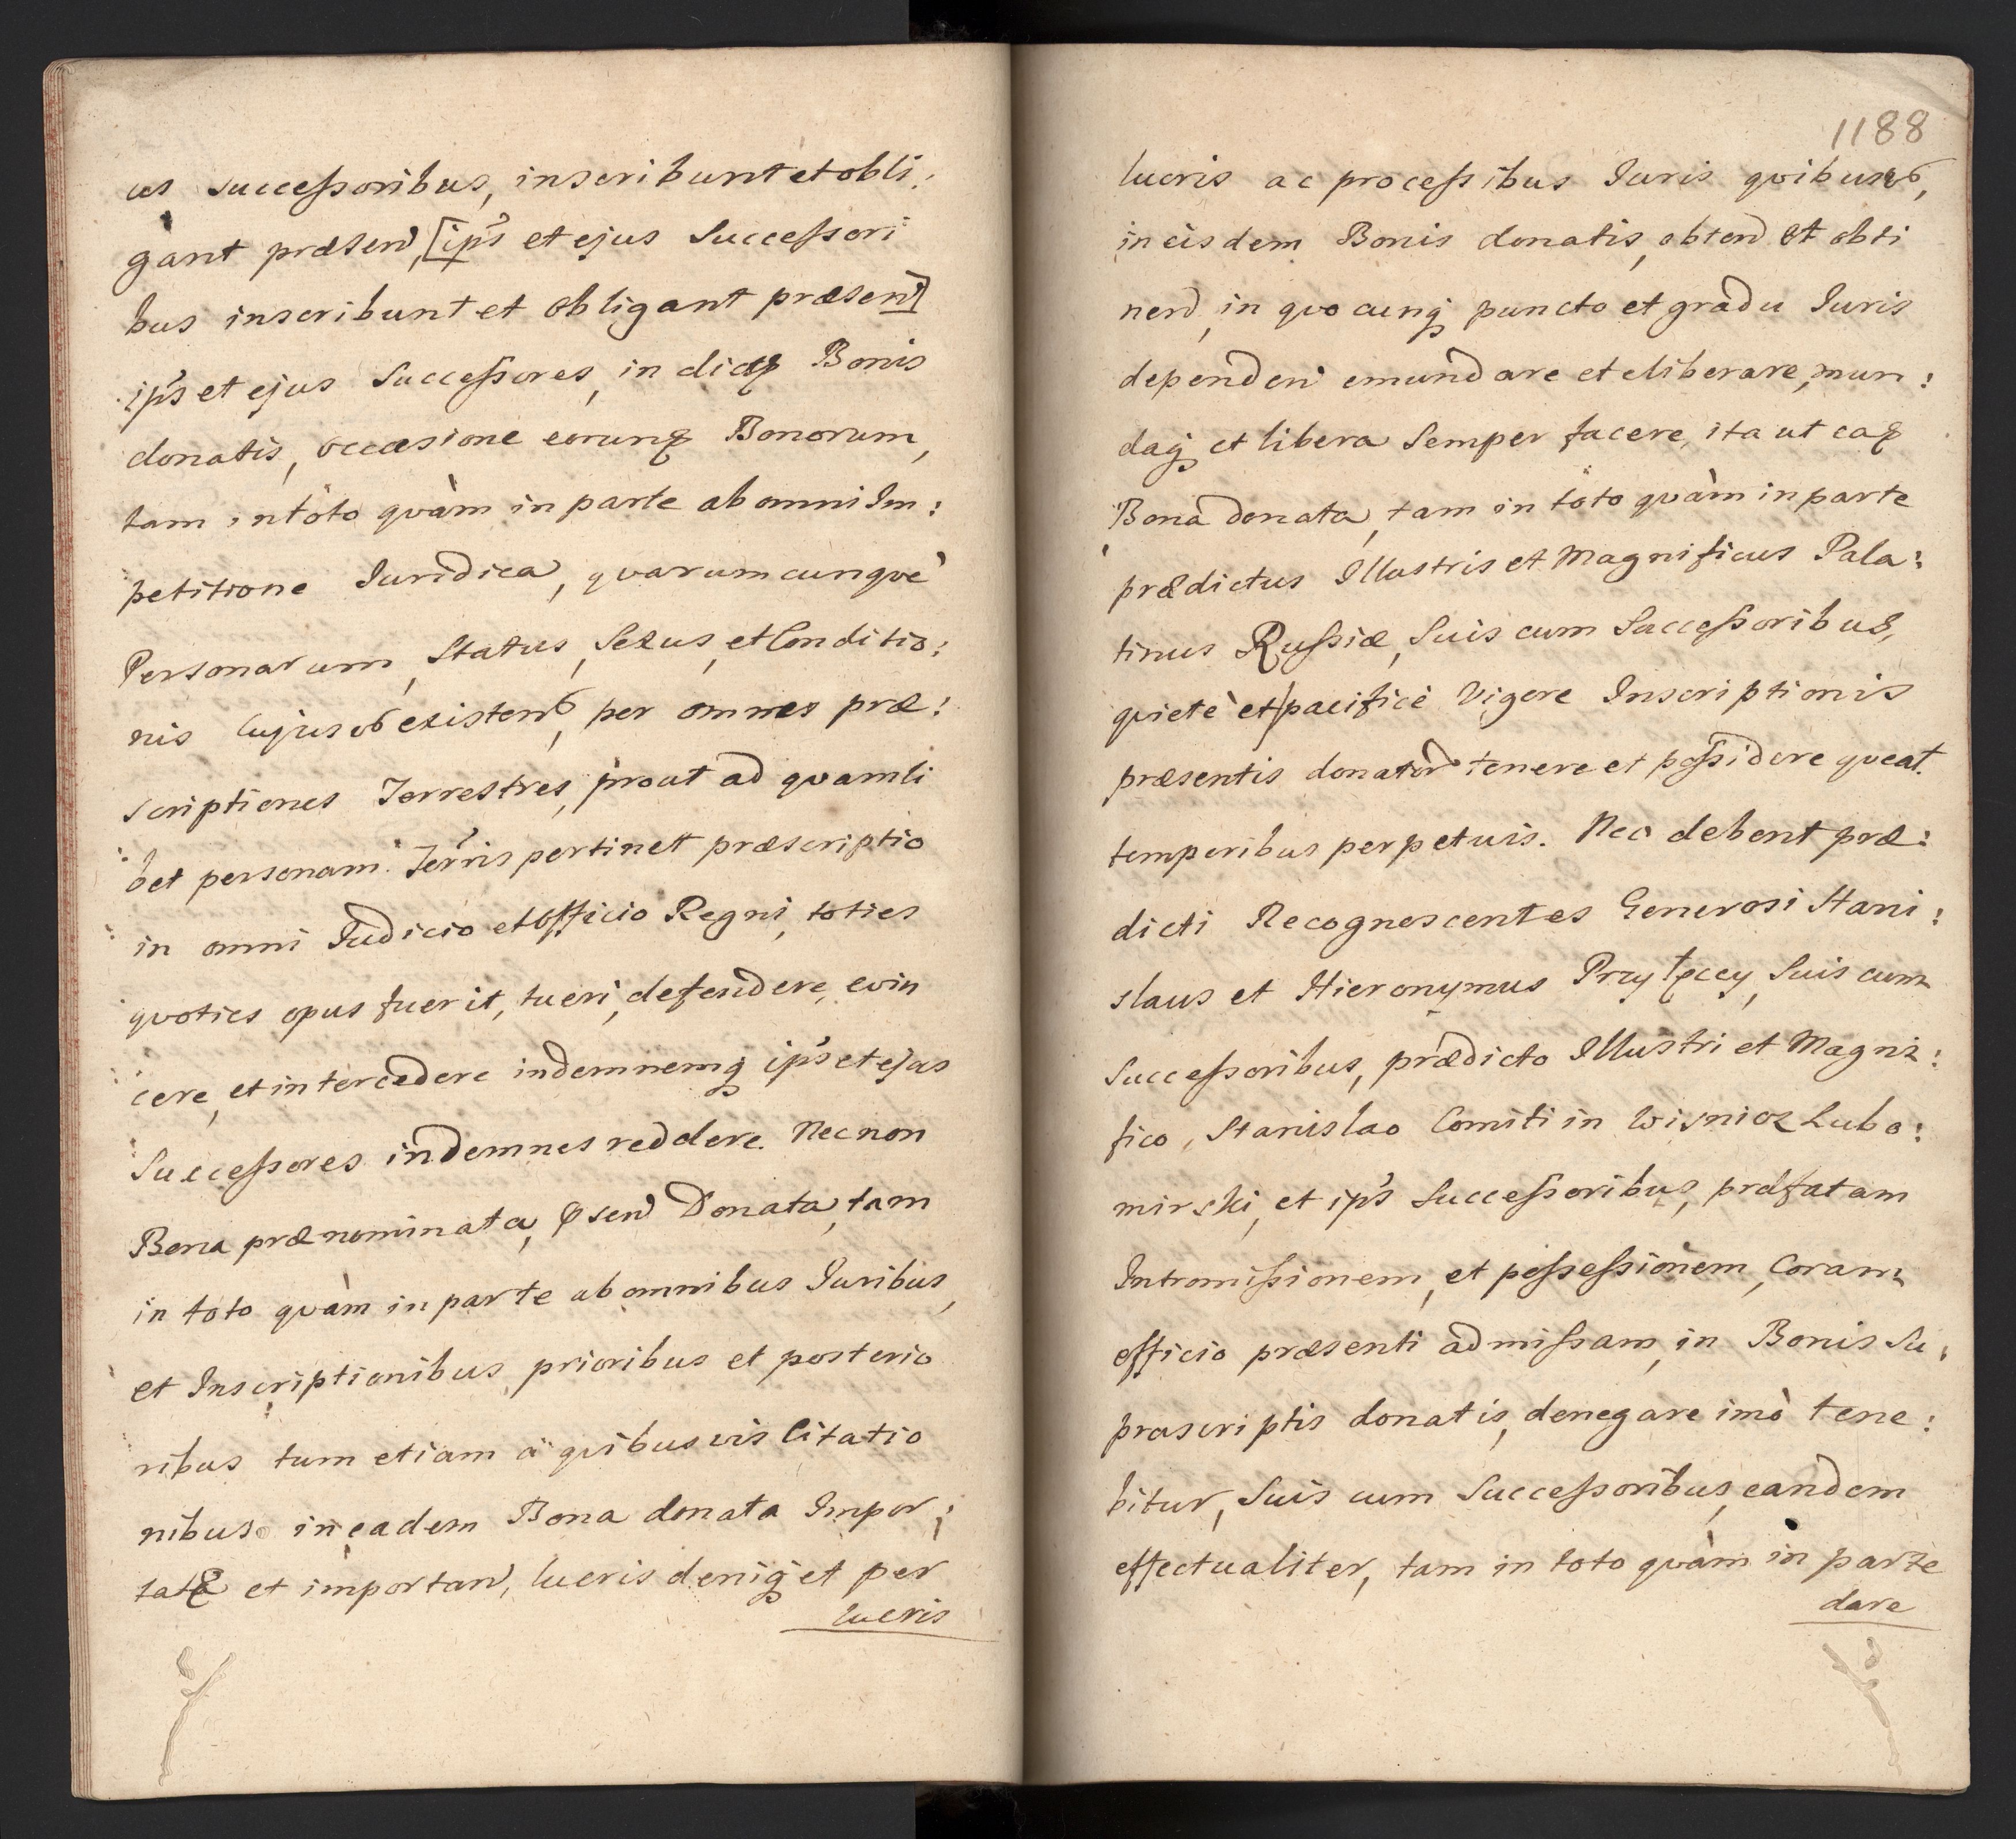 us successoribus, inscribunt et obli:
gant præsen, [ips et ejus Successori
bus inscribunt et obligant præsen]
ips et ejus Successores, in dictis Bonis
donatis, occasione eorunq Bonorum,
tam in toto quàm in parte ab omni Im:
petitione Juridica, quarumcunque
Personarum, Status, Sexus, et Conditio:
nis Cujusvis existen, per omnes præ:
scriptiones Terrestres, prout ad quamli
bet personam Terris pertinet præscriptio
in omni Judicio et Officio Regni, toties
quoties opus fuerit, tueri, defendere, evin
cere, et intercedere indemnemq ips et ejus
Successores indemnes reddere. Nec non
Bona prænominata, psen Donata, tam
in toto quàm in parte ab omnibus Juribus,
et Inscriptionibus, prioribus et posterio
ribus tum etiam à quibusvis Citatio
nibus in eadem Bona donata Impor:
tat et importan, lucris deniq et per
lucris
1188
lucris ac processibus Juris quibusvis,
in eisdem Bonis donatis, obten et obti
nen, in quocunq puncto et gradu Juris
dependen emundare et eliberare, mun:
daq et libera Semper facere, ita ut eaq
Bona donata, tam in toto quàm in parte
prædictus Illustris et Magnificus Pala:
tinus Russiæ, Suis cum Successoribus,
quietè et pacificè Vigore Inscriptionis
præsentis donator tenere et possidere queat.
temporibus perpetuis. Nec debent præ:
dicti Recognoscentes Generosi Stani:
slaus et Hieronymus Przyłęccy, Suis cum
Successoribus, prædicto Illustri et Magni:
fico, Stanislao Comiti in Wisnicz Lubo:
mirski, et ips Successoribus, præfatam
Intromissionem, et possessionem, Coram
officio præsenti admissam, in Bonis Su:
prascriptis donatis, denegare imò tene:
bitur, Suis cum Successoribus, eandem
effectualiter, tam in toto quàm in parte
dare